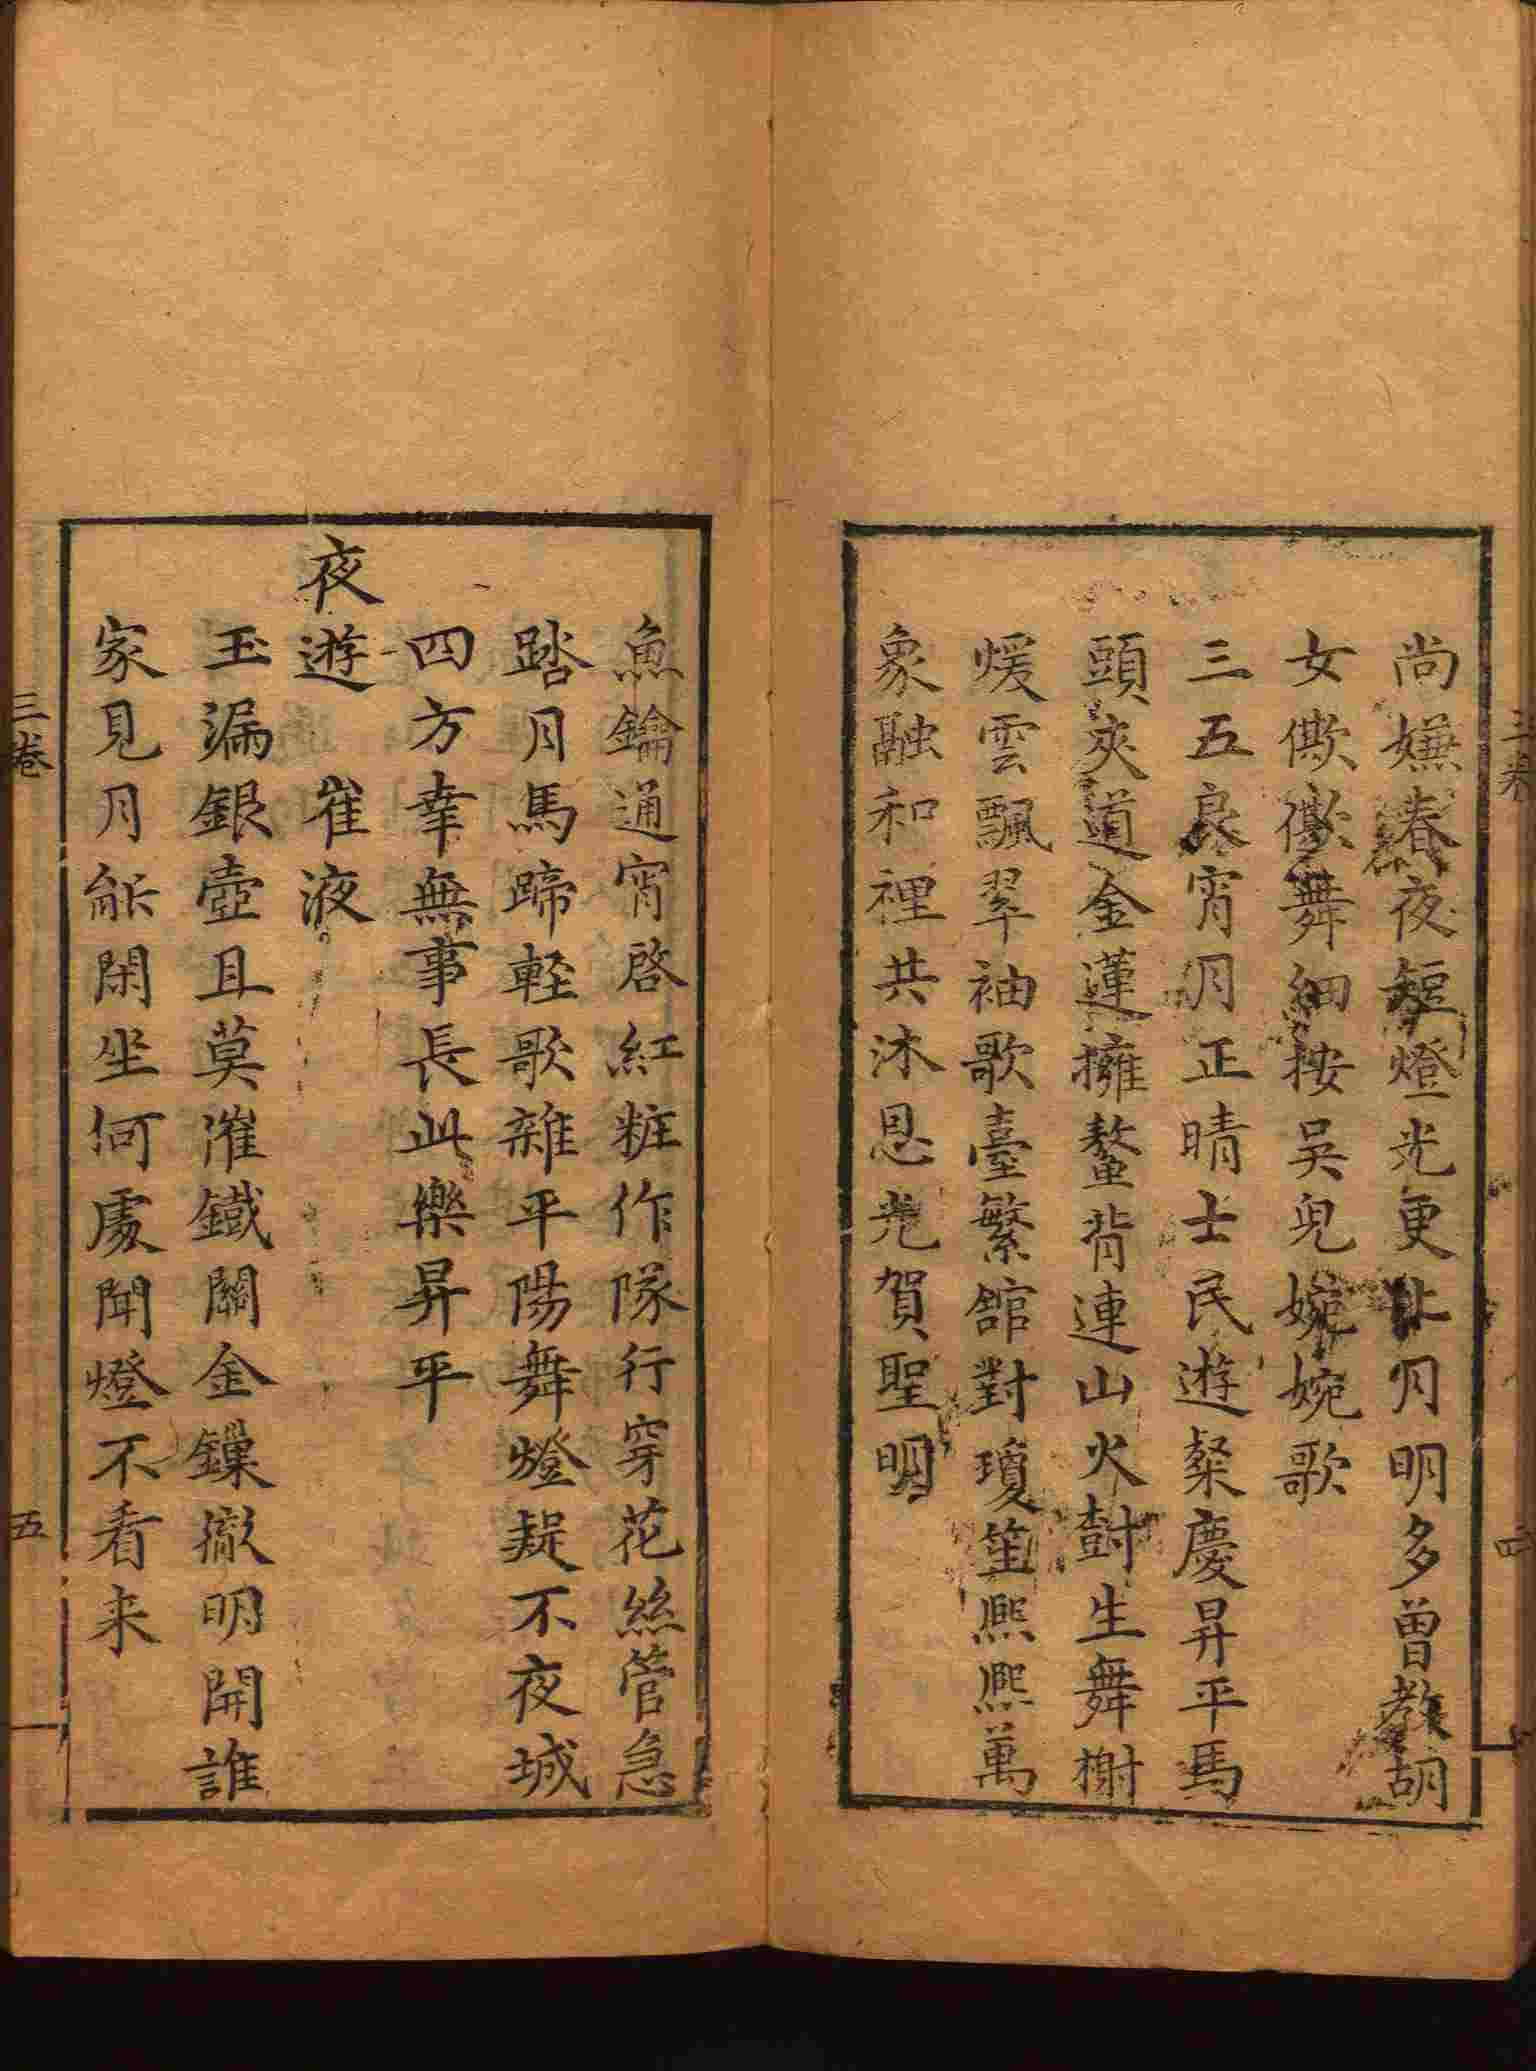 三卷
四
尚嫌春夜短燈光更比月明多曾教胡
女僛僛舞細按吳兒婉婉歌
三五良宵月正晴士民遊粲慶昇平馬
頭夾道金蓮擁鰲背連山火對生舞榭
煖雲飄翠袖歌臺繁舘對瓊笙熈熈萬
象融和裡共沐恩光賀聖明
魚鑰通宵啓紅粧作隊行穿花絲管急
踏月馬蹄輕歌雜平陽舞燈疑不夜城
四方幸無事長此樂昇平
夜遊 崔液
玉漏銀壺且莫漼鐵關金鏁徹明開誰
家見月能閑坐何處聞燈不看来
三卷
五